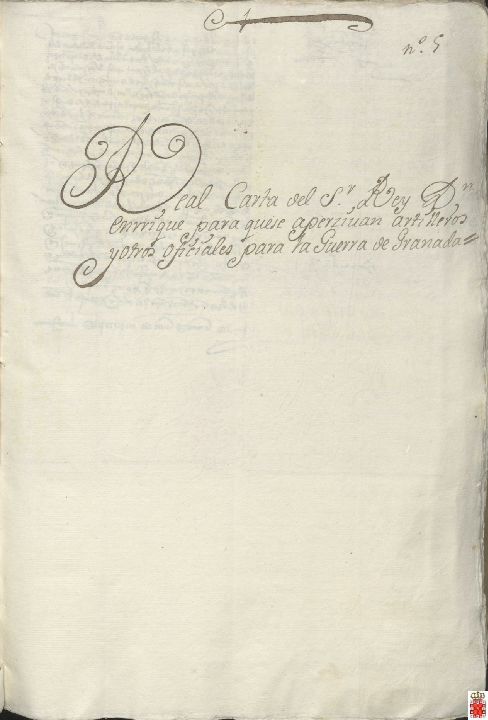 nº. 5
Real Carta del S.r Rey D.n
enrrique para quese aperzivan artilleros
yotros oficiales para la Guerra de Granada=